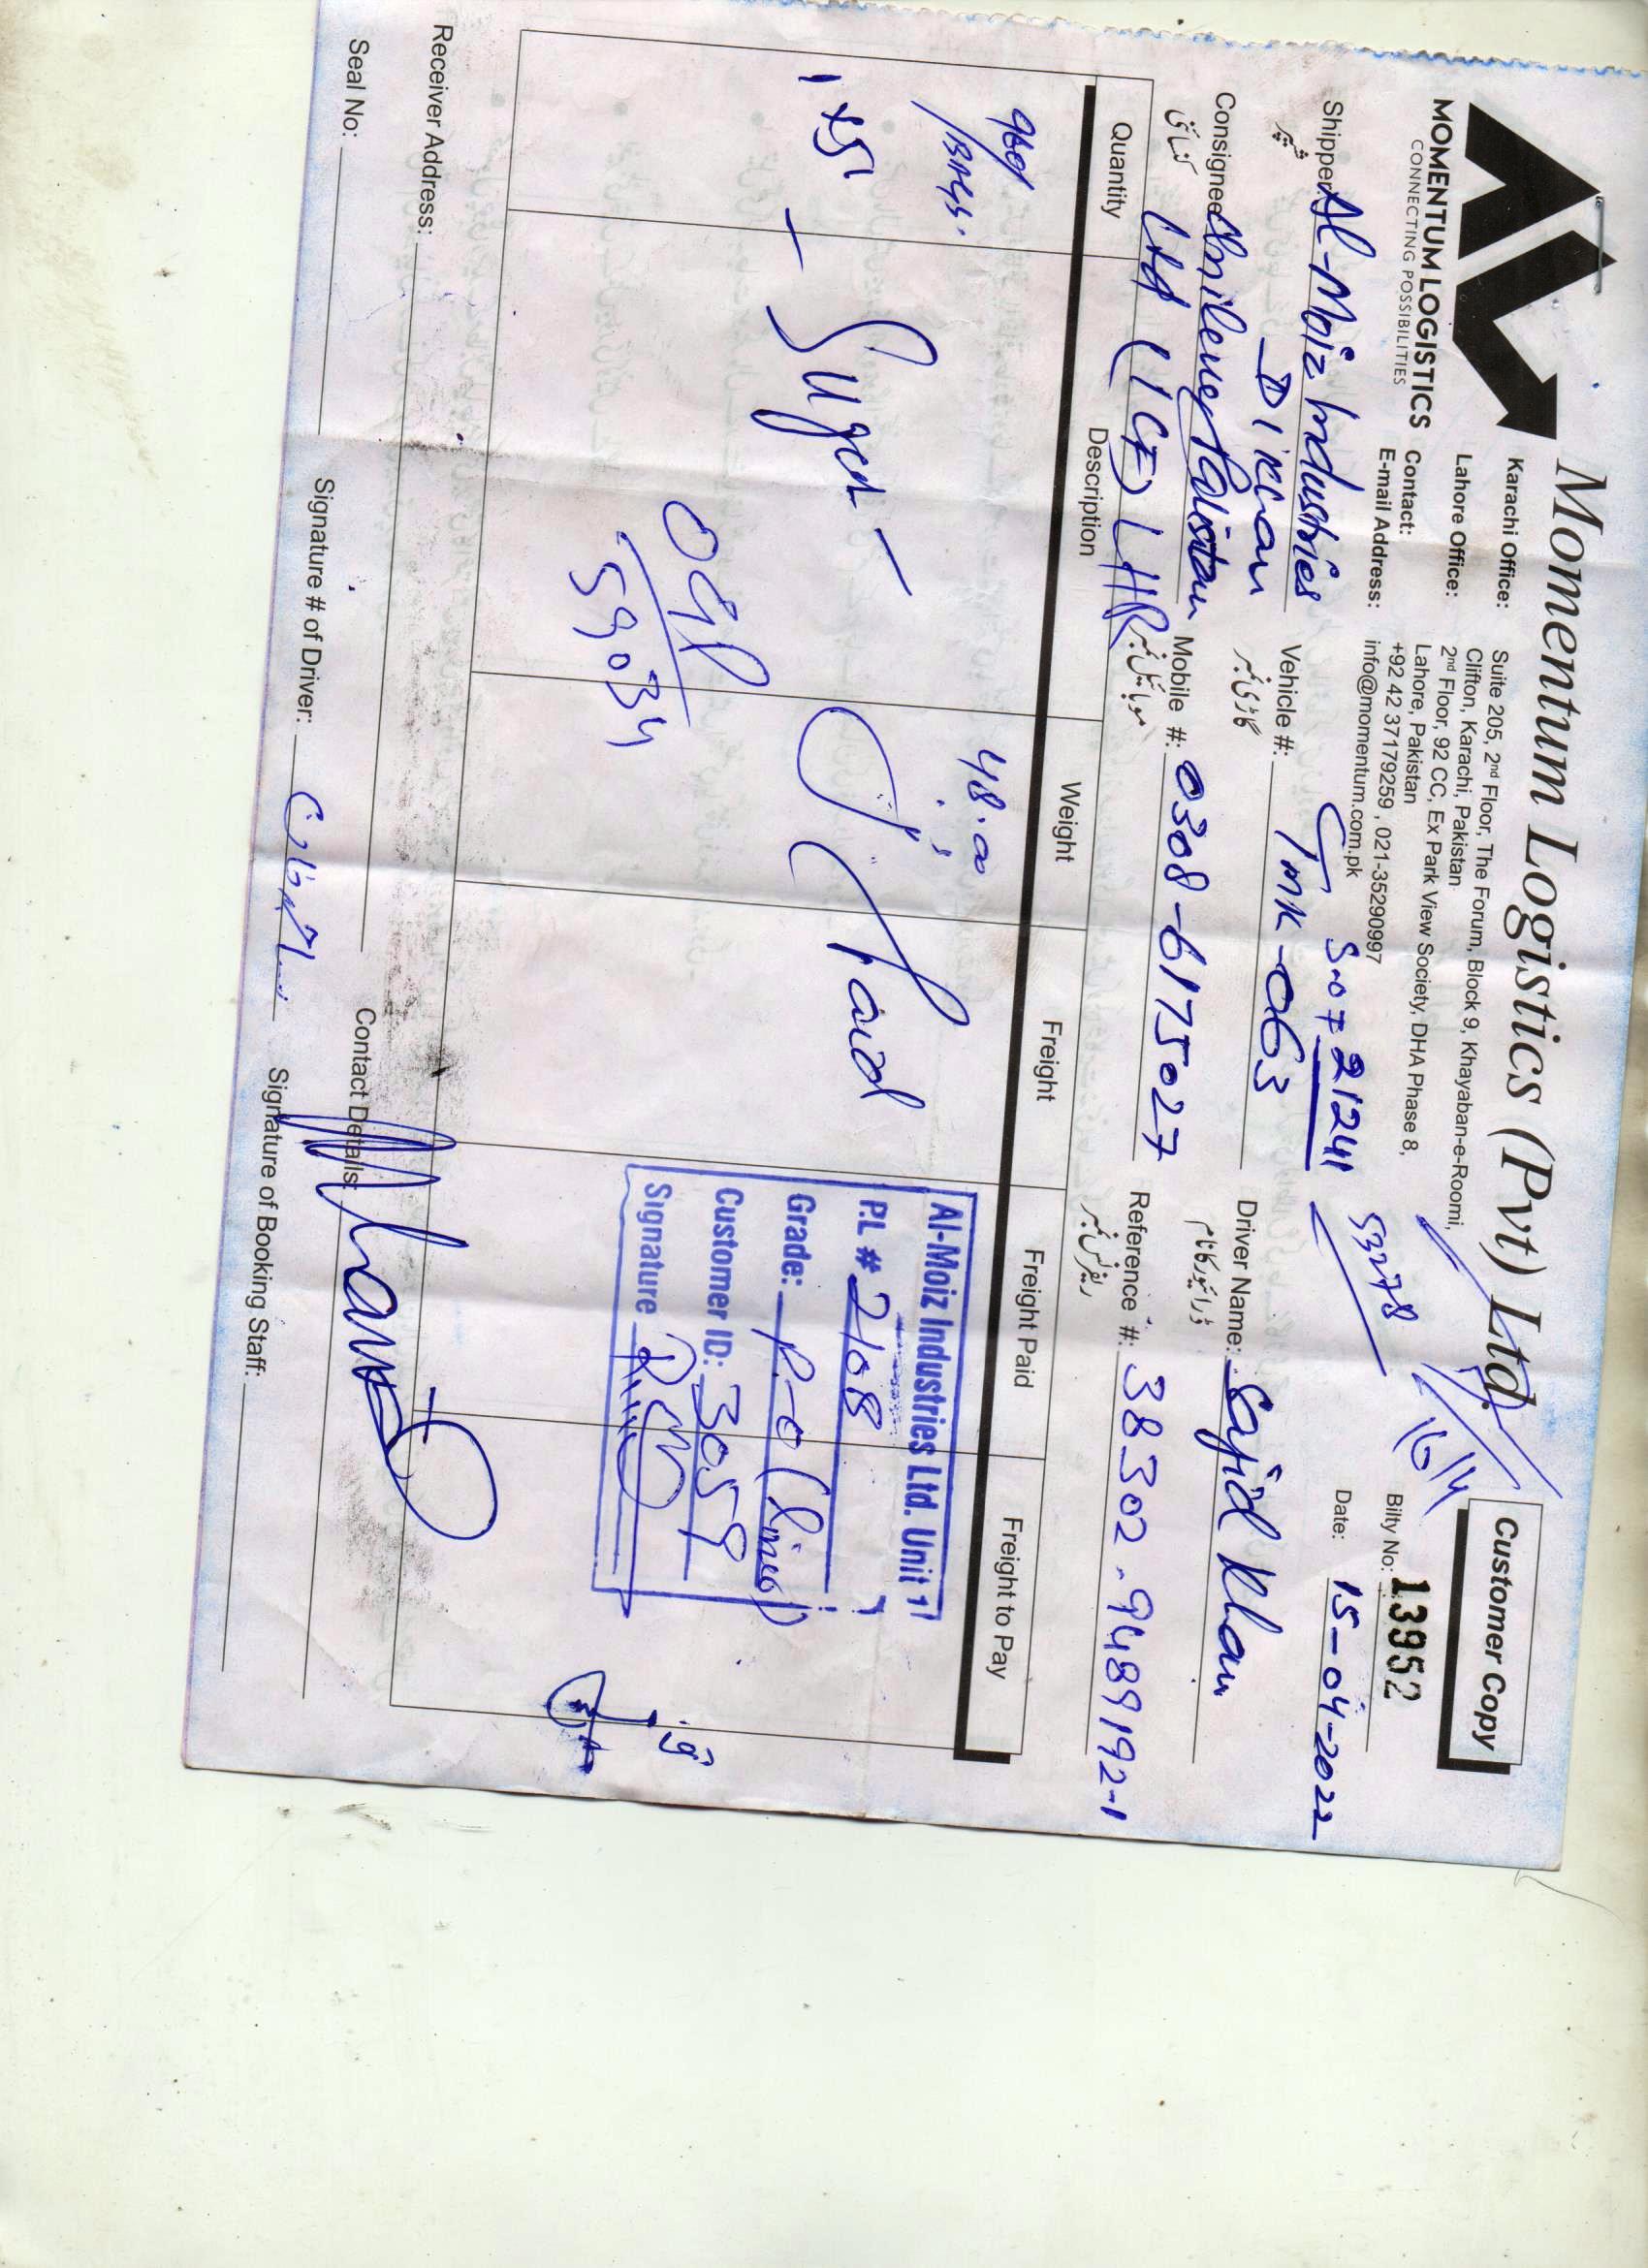 Momentum Logistics (Pvt) Ltd.
Customer Copy
MOMENTUM LOGISTICS
CONNECTING POSSIBILITIES
Karachi Office: Suite 205, 2nd Floor, The Forum, Block 9, Khayaban-e-Roomi,
Clifton, Karachi, Pakistan
Lahore Office: 2nd Floor, 92 CC, Ex Park View Society, DHA Phase 8,
Lahore, Pakistan
Contact: +92 42 37179259 , 021-35290997
E-mail Address: info@momentum.com.pk
16/4
53278
21241
Bilty No: 13952
Date: 15-04-2022
Shipper: Al-Moiz Industries
شپر
DIKhan
Vehicle #: TMK-063
گاڑی نمبر
Driver Name: Sajid Khan
ڈرائیور کا نام
Consignee: Unilever Pakistan
کنسائی
Ltd (ICF) LHR
Mobile #: 0308-6175027
موبائیل نمبر
Reference #: 38302-9489192-1
ریفرنس نمبر
Quantity Description Weight Freight Freight Paid Freight to Pay
960 48.00
/BAGS.
1x45 - Sugar -
Paid
OGP
59034
Al-Moiz Industries Ltd. Unit 1
P.L # 2108
Grade: P-0
Customer ID: 3059
Signature
Receiver Address: Contact Details:
Seal No: Signature # of Driver: Signature of Booking Staff: